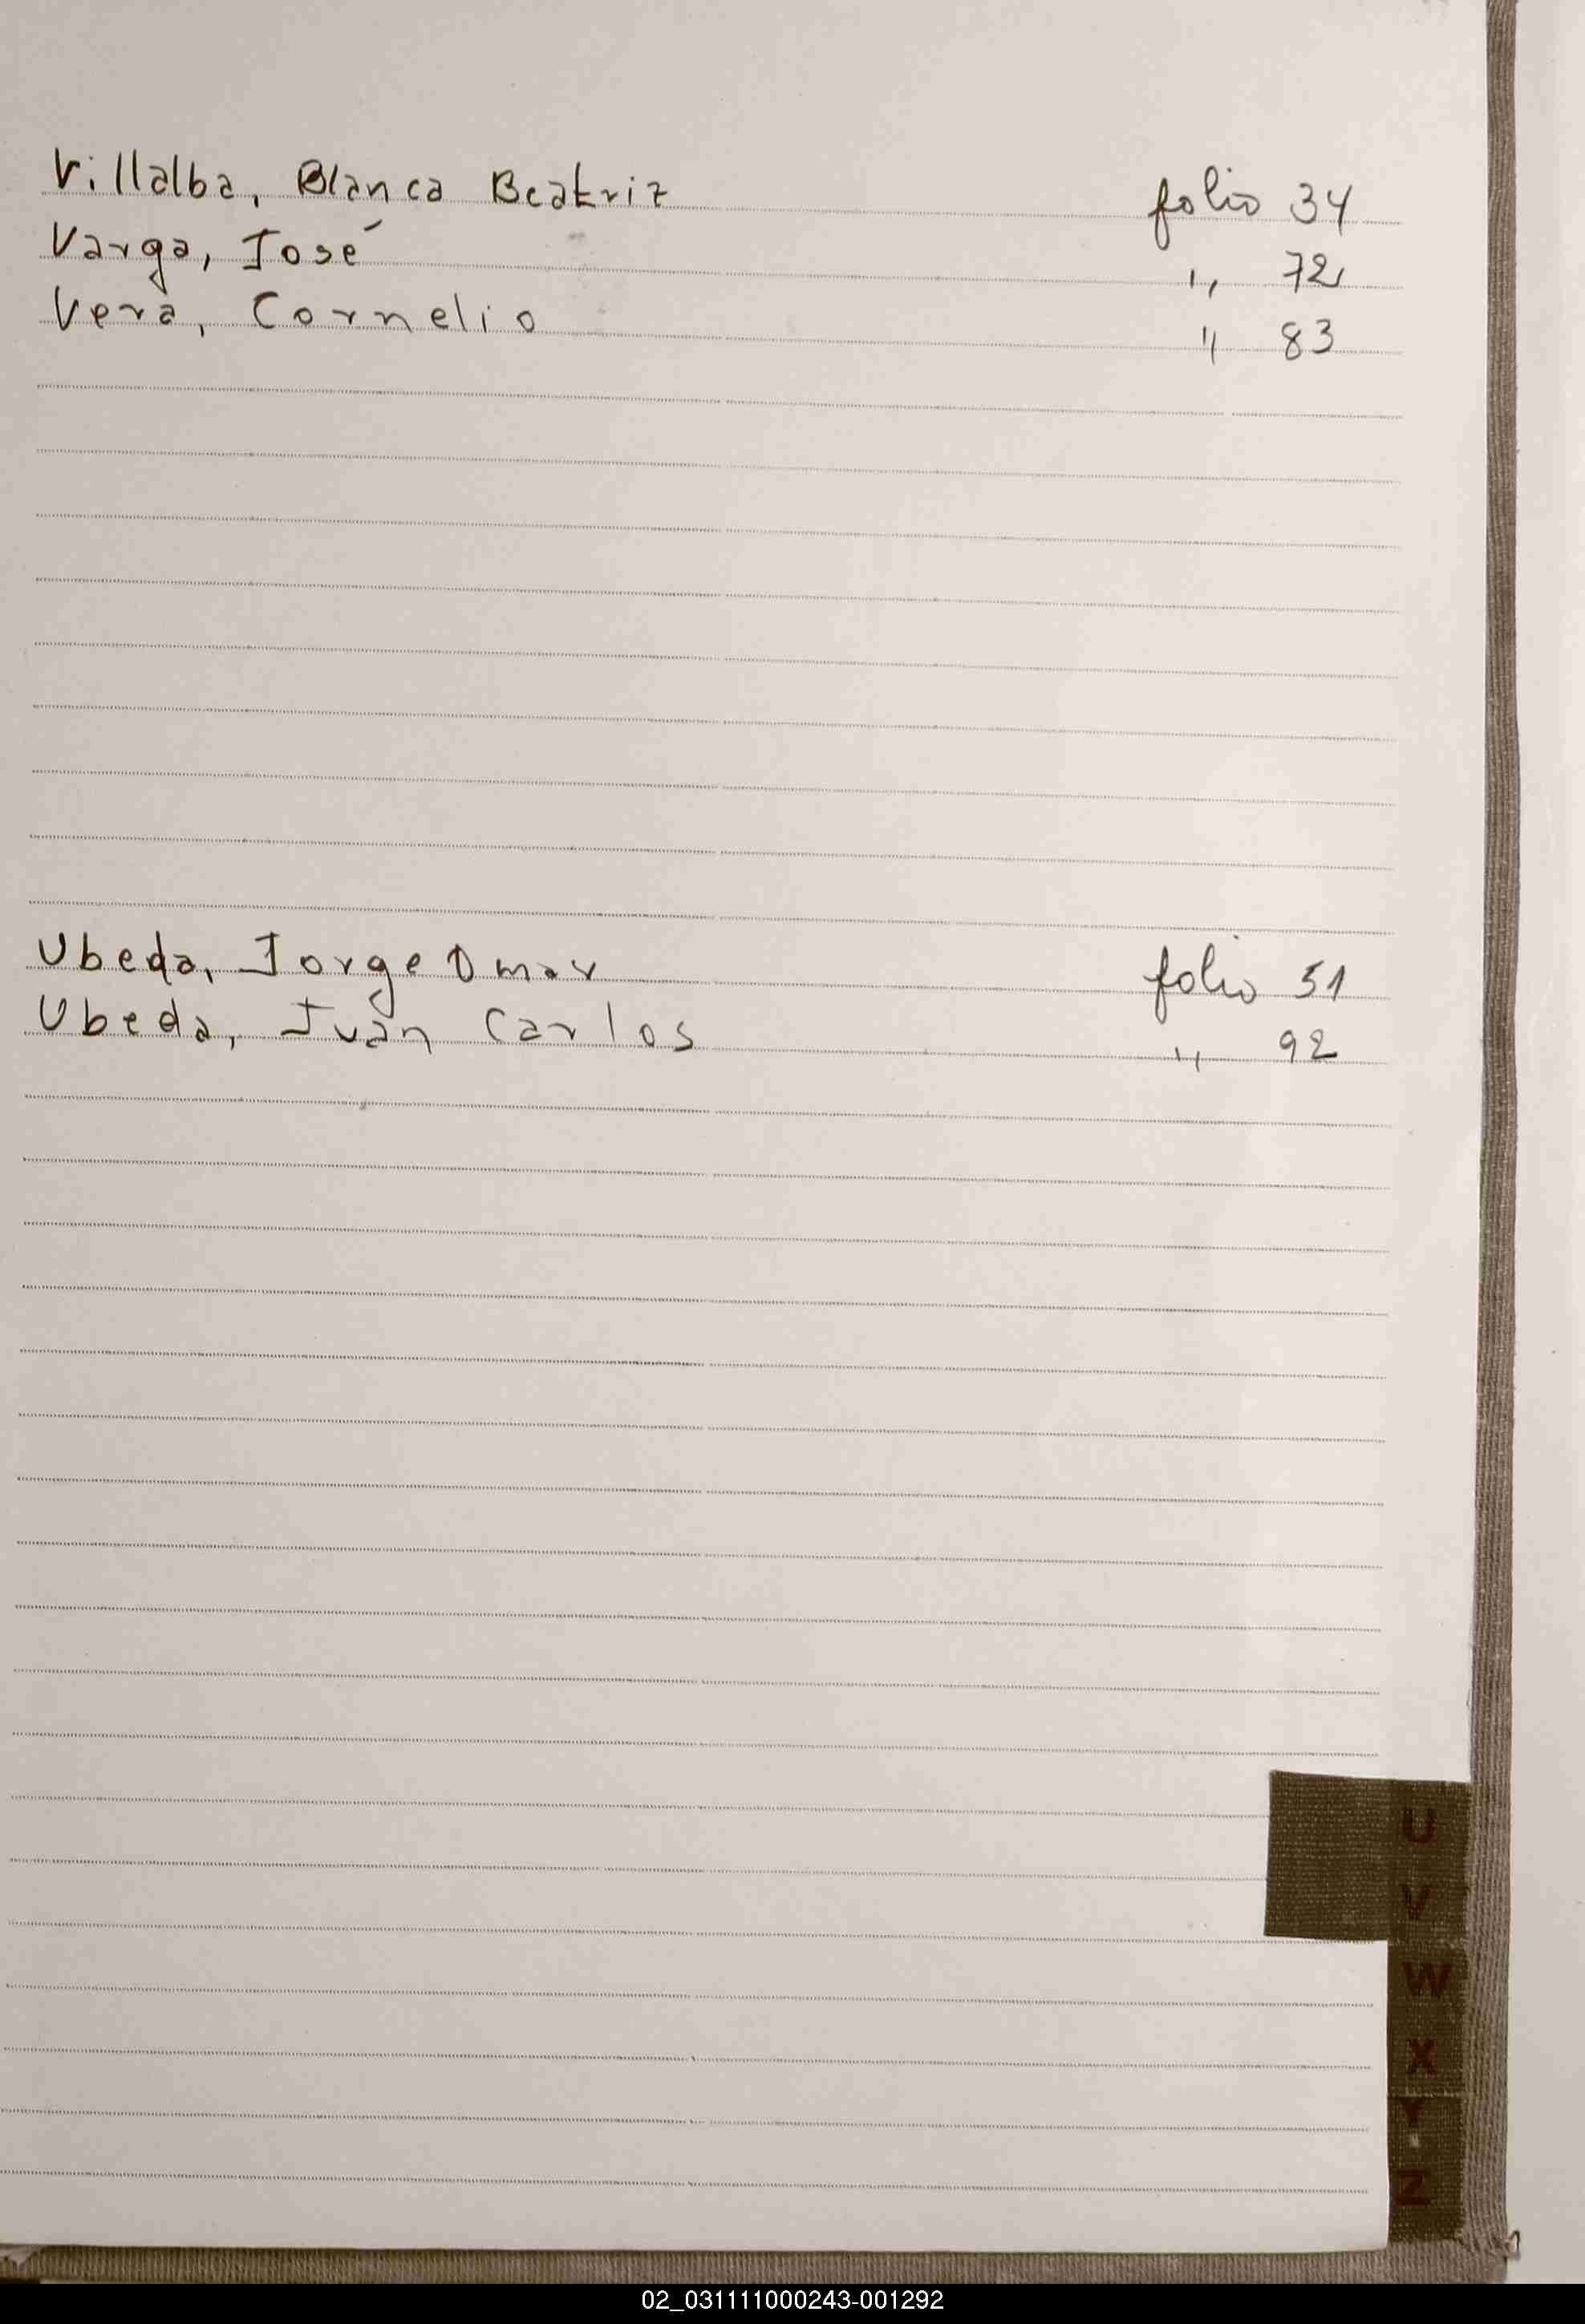 Villalba, Blanca Beatriz folio 34
Varga, José " 72
Vera, Cornelio " 83
Ubeda, Jorge Omar folio 51
Ubeda, Juan Carlos " 92
U
V
W
X
Y
Z
02_031111000243-001292